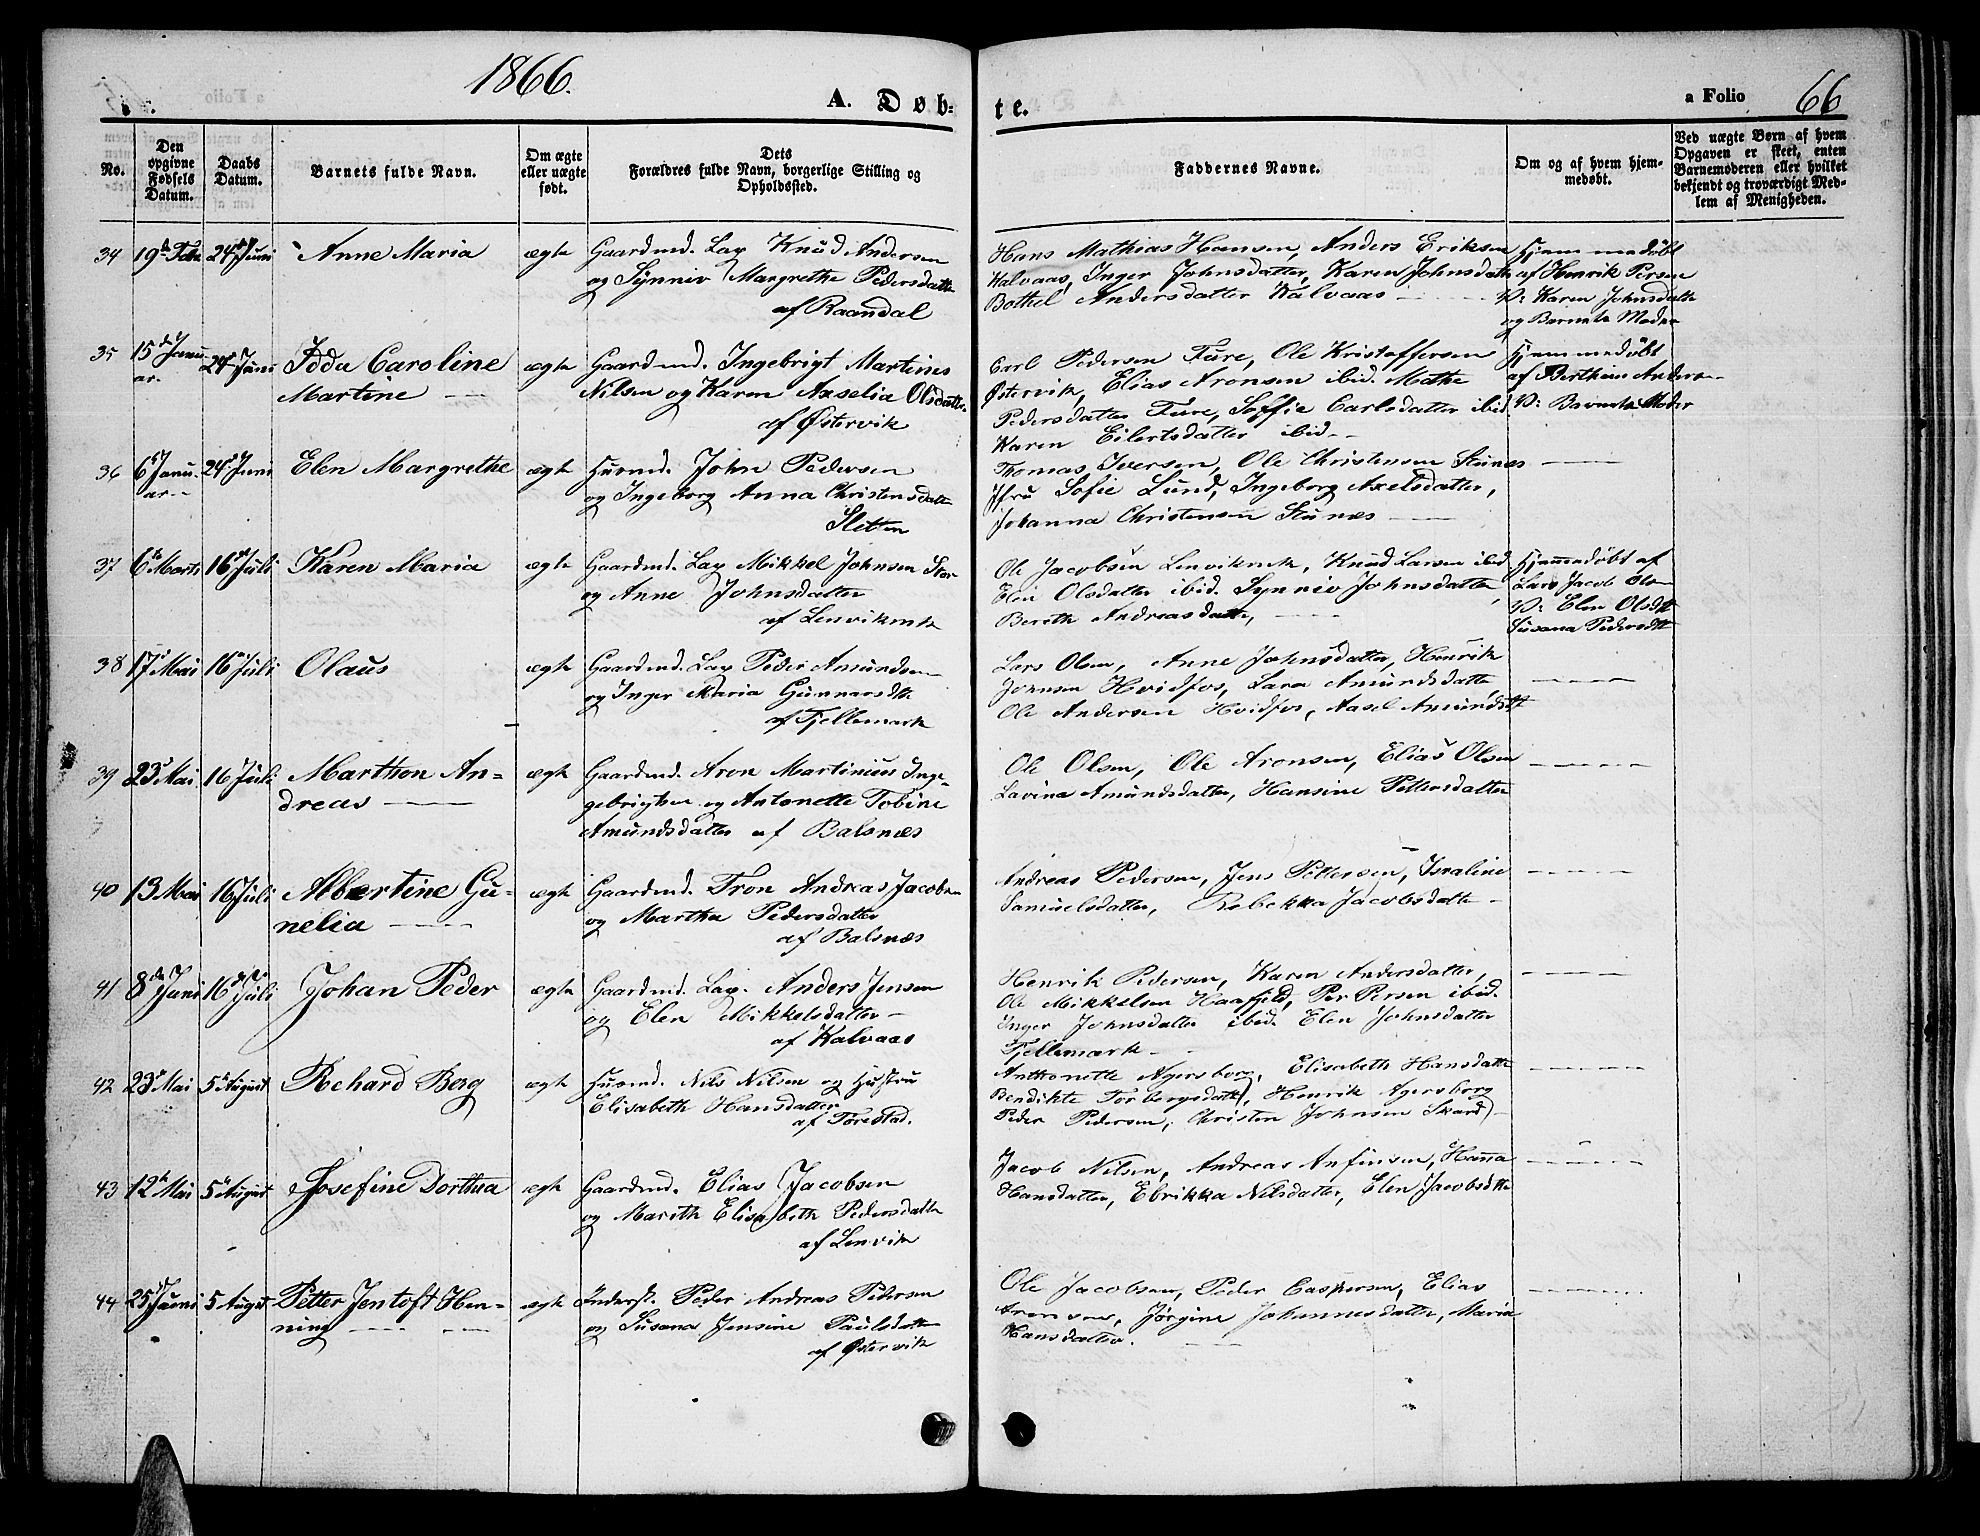 1866.
A. Døb-
te.
a Folio 66
No.
Den opgivne Fødsels Datum.
Daabs Datum.
Barnets fulde Navn.
Om ægte eller uægte født.
Dets Forældres fulde Navn, borgerlige Stilling og Opholdssted.
Faddernes Navne.
Om og af hvem hjemmedøbt.
Ved uægte Børn af hvem Opgaven er skeet, enten Barnemoderen eller hvilket bekjendt og troværdigt Medlem af Menigheden.
34 19de Febr 24de Juni Anne Maria ægte Gaardmd. Lap Knud Andersen
og Synniv Margrethe Pedersdatter
af Raandal
Hans Mathias Hansen, Anders Eriksen
Kalvaas, Inger Johnsdatter, Karen Johnsdatter
Bothel Andersdatter Kalvaas
Hjemmedøbt
af Henrik Persen
V: Karen Johnsdatter
og Barnets Moder
35 15de Janu-
ar. 24de Juni Idda Caroline
Martine ægte Gaardmd. Ingebrigt Martines
Nilsen og Karen Axselia Olsdatter
af Østervik
Carl Pedersen Fure, Ole Kristoffersen
Østervik, Elias Aronsen ibid. Mathe
Pedersdatter Fure, Soffie Carlsdatter ibid
Karen Eilertsdatter ibid
Hjemmedøbt
af Berthina Anders
V: Barnets Moder
36 6te Janu-
ar 24de Juni Elen Margrethe ægte Husmd. John Pedersen
og Ingeborg Anna Christensdatter
Sletten
Thomas Iversen, Ole Christensen Stunes
Jfru Sofie Lund, Ingeborg Axelsdatter,
Johanna Christensen Stunes
37 6te Marts 16de Juli Karen Maria ægte Gaardmd. Lap Mikkel Johnsen Stor
og Anne Johnsdatter
af Lenvikmk
Ole Jacobsen Lenvikmk, Knud Larsen ibid
Elen Olsdatter ibid. Synniv Johnsdatter,
Bereth Andreasdatter,
Hjemmedøbt af
Lars Jacob Olsen
V: Elen Olsdtt
Susana Pedersdtt
38 17de Mai 16de Juli Olaus ægte Gaardmd. Lap Peder Amundsen
og Inger Maria Gunnarsdtt.
af Fjellemark
Lars Olsen, Anne Johnsdatter, Henrik
Johnsen Hvidfos, Lara Amundsdatter
Ole Andersen Hvidfos, Aasel Amundsdtt
39 23de Mai 16 Juli Marthon An-
dreas ægte Gaardmd. Aron Martinius Inge-
gebrigtsen og Antonette Tobine
Amundsdatter af Balsnæs
Ole Olsen, Ole Aronsen, Elias Olsen
Lavina Amundsdatter, Hansine Pettersdatter
40 13 Mai 16 Juli Albertine Gu-
nelia ægte Gaardmd. Tron Andreas Jacobsen
og Martha Pedersdatter
af Balsnæs
Andreas Pedersen, Jens Pettersen, Israline
Samuelsdatter, Rebekka Jacobsdatter
41 8de Juni 16de Juli Johan Peder ægte Gaardmd. Lap. Anders Jensen
og Elen Mikkelsdatter
af Kalvaas
Henrik Pedersen, Karen Andersdatter,
Ole Mikkelsen Haafjeld, Per Persen ibid.
Inger Johnsdatter ibid. Elen Johnsdatter
Fjellemark
42 23de Mai 5te August Richard Berg ægte Husmd. Nils Nilsen og Hustru
Elisabeth Hansdatter
af Forestad.
Anthonette Agersborg, Elisabeth Hansdatter
Bendikte Torbergsdatter, Henrik Agersborg
Peder Pedersen, Christen Johnsen Skard
43 12te Mai 5te August Josefine Dorthea ægte Gaardmd. Elias Jacobsen
og Mareth Elisabeth Pedersdatter
af Lenvik
Jacob Nilsen, Andreas Anfinsen, Hanna
Hansdatter, Ebrikka Nilsdatter, Elen Jacobsdtt
44 25de Juni 5 August Petter Jentoft Hen-
ning ægte Inderst. Peder Andreas Pedersen
og Susana Jensine Paulsdatter
af Østervik
Ole Jacobsen, Peder Caspersen, Elias
Aronsen, Jørgine Johannesdatter, Maria
Hansdatter.